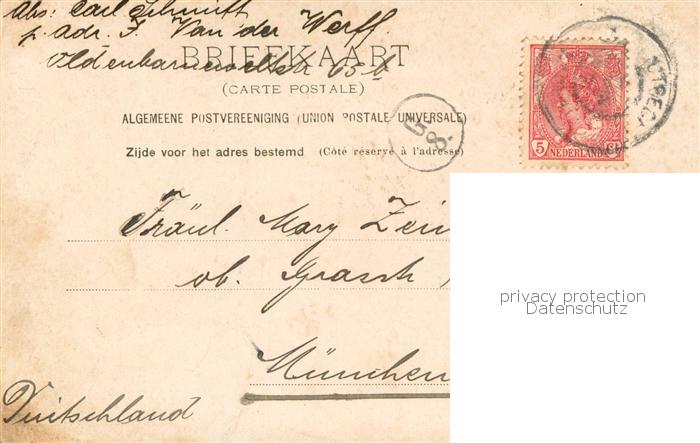 Abs: Carl Schmitt
p. adr. J. Van der Werff.
Oldenbarneveltstr 65 b
BRIEFKAART
(CARTE POSTALE)
ALGEMEENE POSTVEREENIGING (UNION POSTALE UNIVERSELLE)
Zijde voor het adres bestemd (Côté réservé à l'adresse)
58
UTRECHT
5 NEDERLAND Ct
Fräul. Mary Zei
ob. Grasch
München
Duitschland
privacy protection
Datenschutz